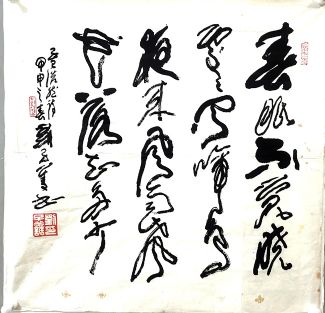 春眠不覺曉
處々聞啼鳥
夜来風雨聲
花落知多少
孟浩然詩
甲申之春